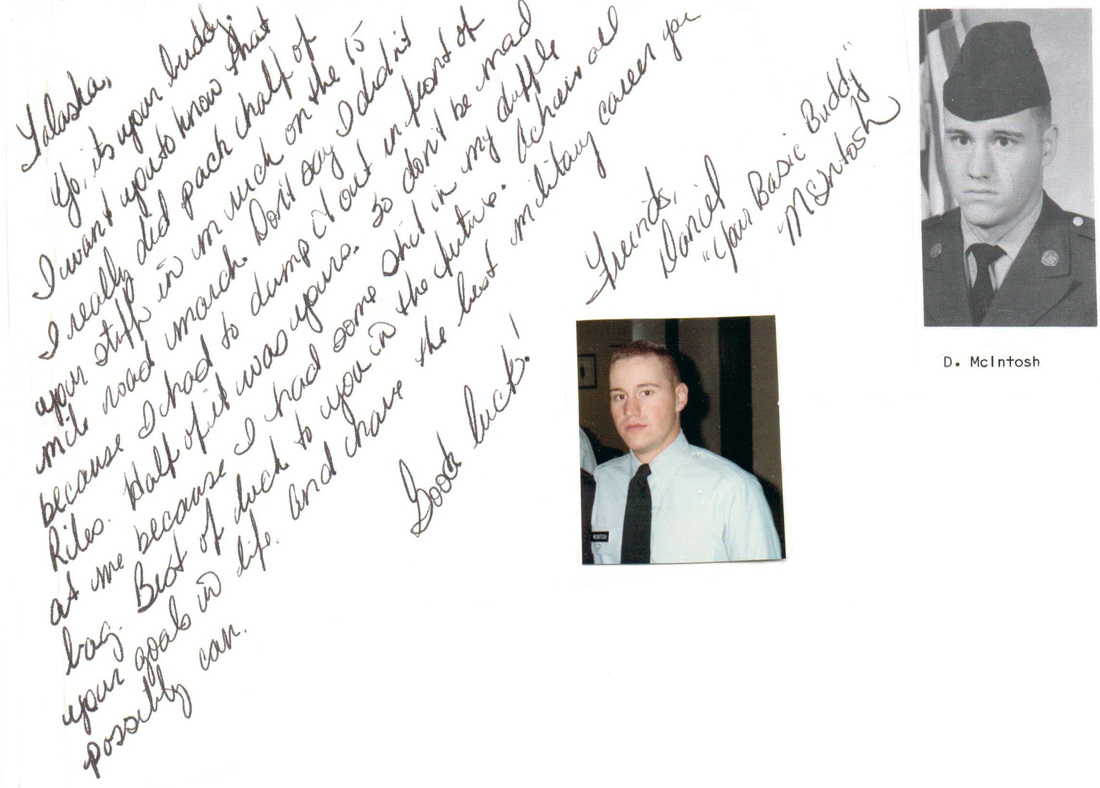 Yalaska,
Yo, its your buddy.
I want you to know that
I really did pack half of
your stuff in much on the 15
mile road march. Don't say I didn't
because I had to dump it out in front of
Riles. Half of it was yours. So don't be mad
at me because I had some shit in my duffle
bag. Best of luck to you in the future. Acheive all
your goals in life. and have the best military career you
possibly can.
Good luck!
Freinds,
Daniel
"Your Basic Buddy"
McIntosh
MCINTOSH
D. McIntosh